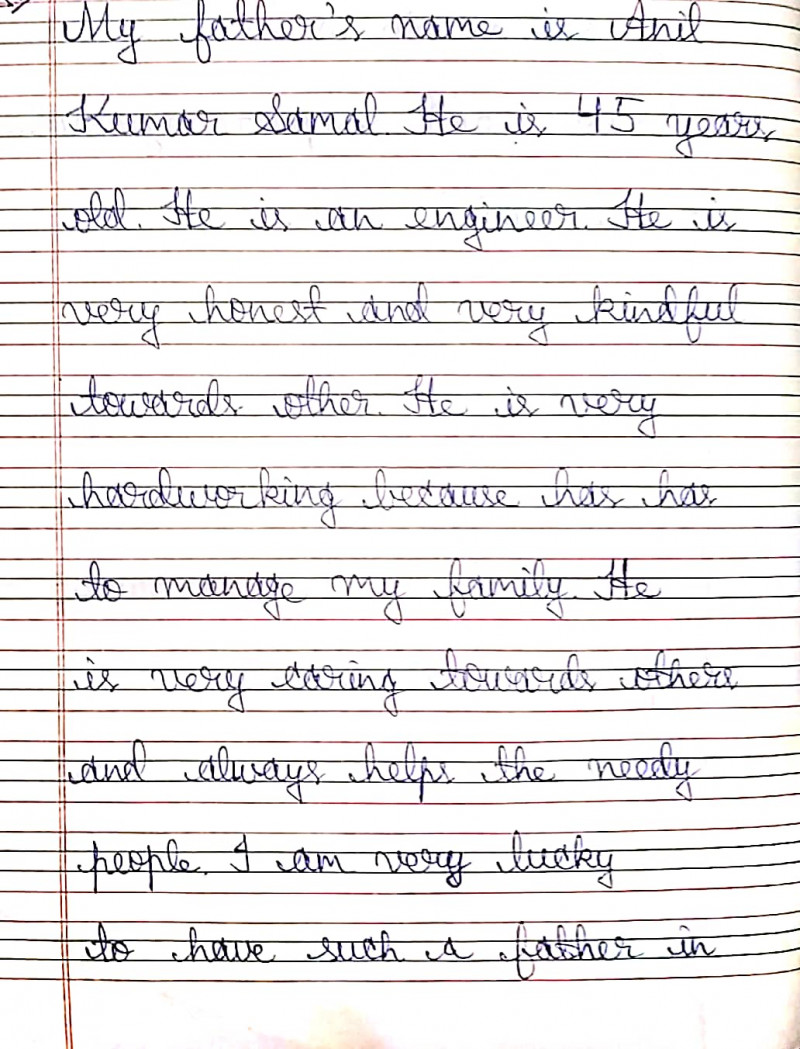 My father's name is Anil
Kumar Samal He is 45 years
old. He is an engineer. He is
very honest and very kindful
towards other. He is very
hardworking because has has
to manage my family. He
is very caring towards others
and always helps the needy
people. I am very lucky
to have such a father in